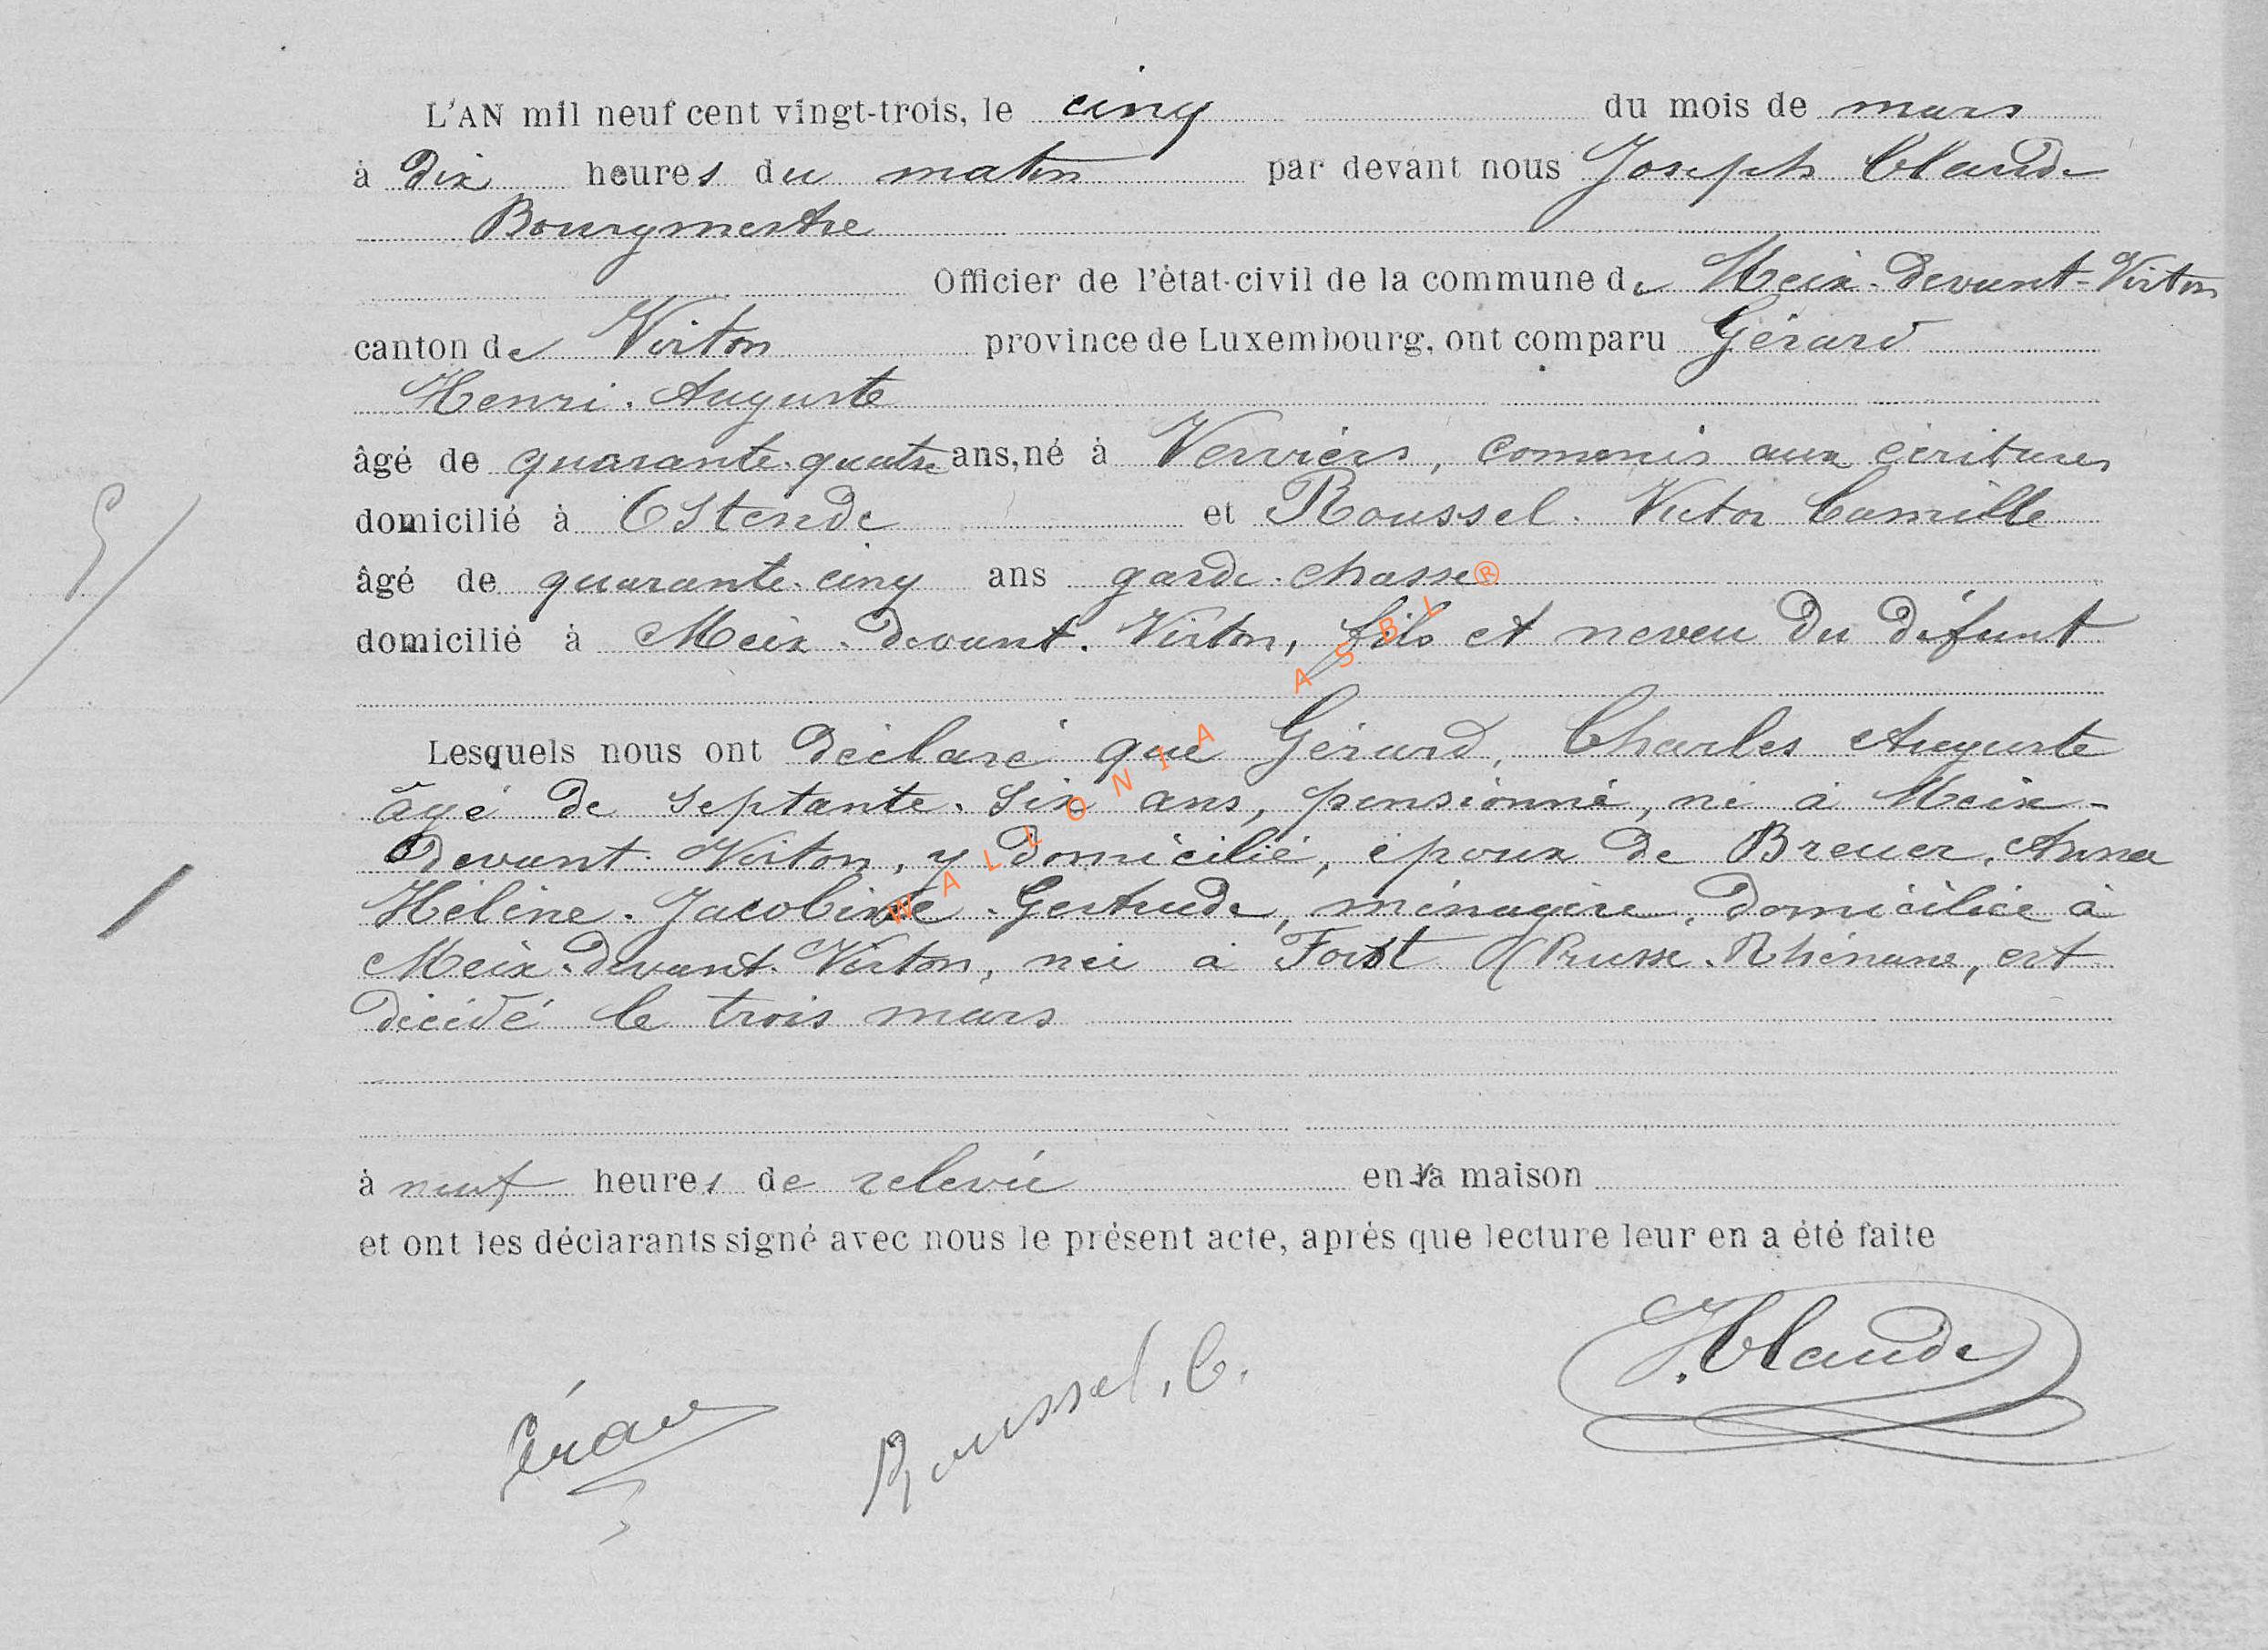 L'AN mil neuf cent vingt-trois, le cinq du mois de mars
à dix heures du matin par devant nous Joseph Claude
Bourgmestre
Officier de l'état-civil de la commune de Meix-devant-Virton
canton de Virton province de Luxembourg, ont comparu Gérard
Henri. Auguste
âgé de quarante-quatre ans, né à Verviers, commis aux écritures
domicilié à Ostende et Roussel. Victor Camille
âgé de quarante-cinq ans garde-chasse
domicilié à Meix-devant-Virton, fils et neveu du défunt
Lesquels nous ont déclaré que Gérard, Charles Auguste
âgé de septante-six ans, pensionné, né à Meix-
devant-Virton, y domicilié, époux de Breuer, Anna
Hélène-Jacobine-Gertrude, ménagère, domiciliée à
Meix-devant-Virton, née à Forst (Prusse-Rhénane, est
décédé le trois mars
à neuf heures de relevée en sa maison
et ont les déclarants signé avec nous le présent acte, après que lecture leur en a été faite
J. Claude
Roussel. C.
5
WALLONIA ASBL ®